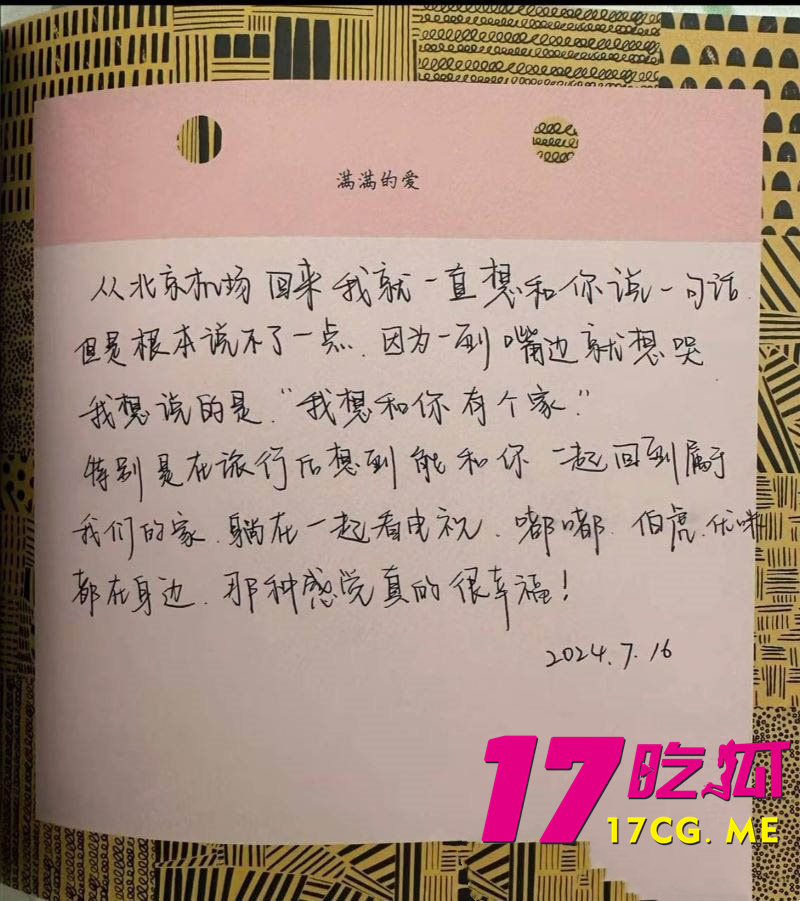 满满的爱
从北京机场回来我就一直想和你说一句话
但是根本说不了一点.因为一到嘴边就想哭
我想说的是."我想和你有个家."
特别是在旅行后想到能和你一起回到属于
我们的家.躺在一起看电视.嘟嘟.伯虎.优咪
都在身边.那种感觉真的很幸福!
2024.7.16
17吃瓜
17CG.ME